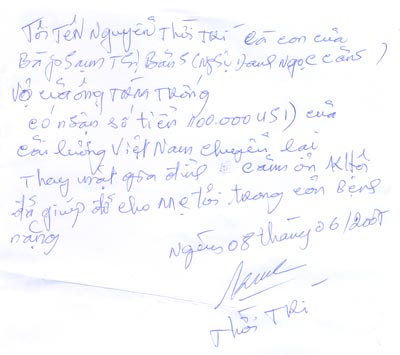 Tôi Tên Nguyễn Thới Trí là con của
Bà Phạm Thị Bằng (Nghệ Danh Ngọc cẩm)
Vợ của ông Trần Trống
có nhận số tiền 100.000 (USD) của
cải lương Việt Nam chuyển lại
Thay mặt gia đình cảm ơn
đã giúp đỡ cho Mẹ tôi trong cơn Bệnh
nặng
Ngày 08 tháng 06/2005
Thới Trí